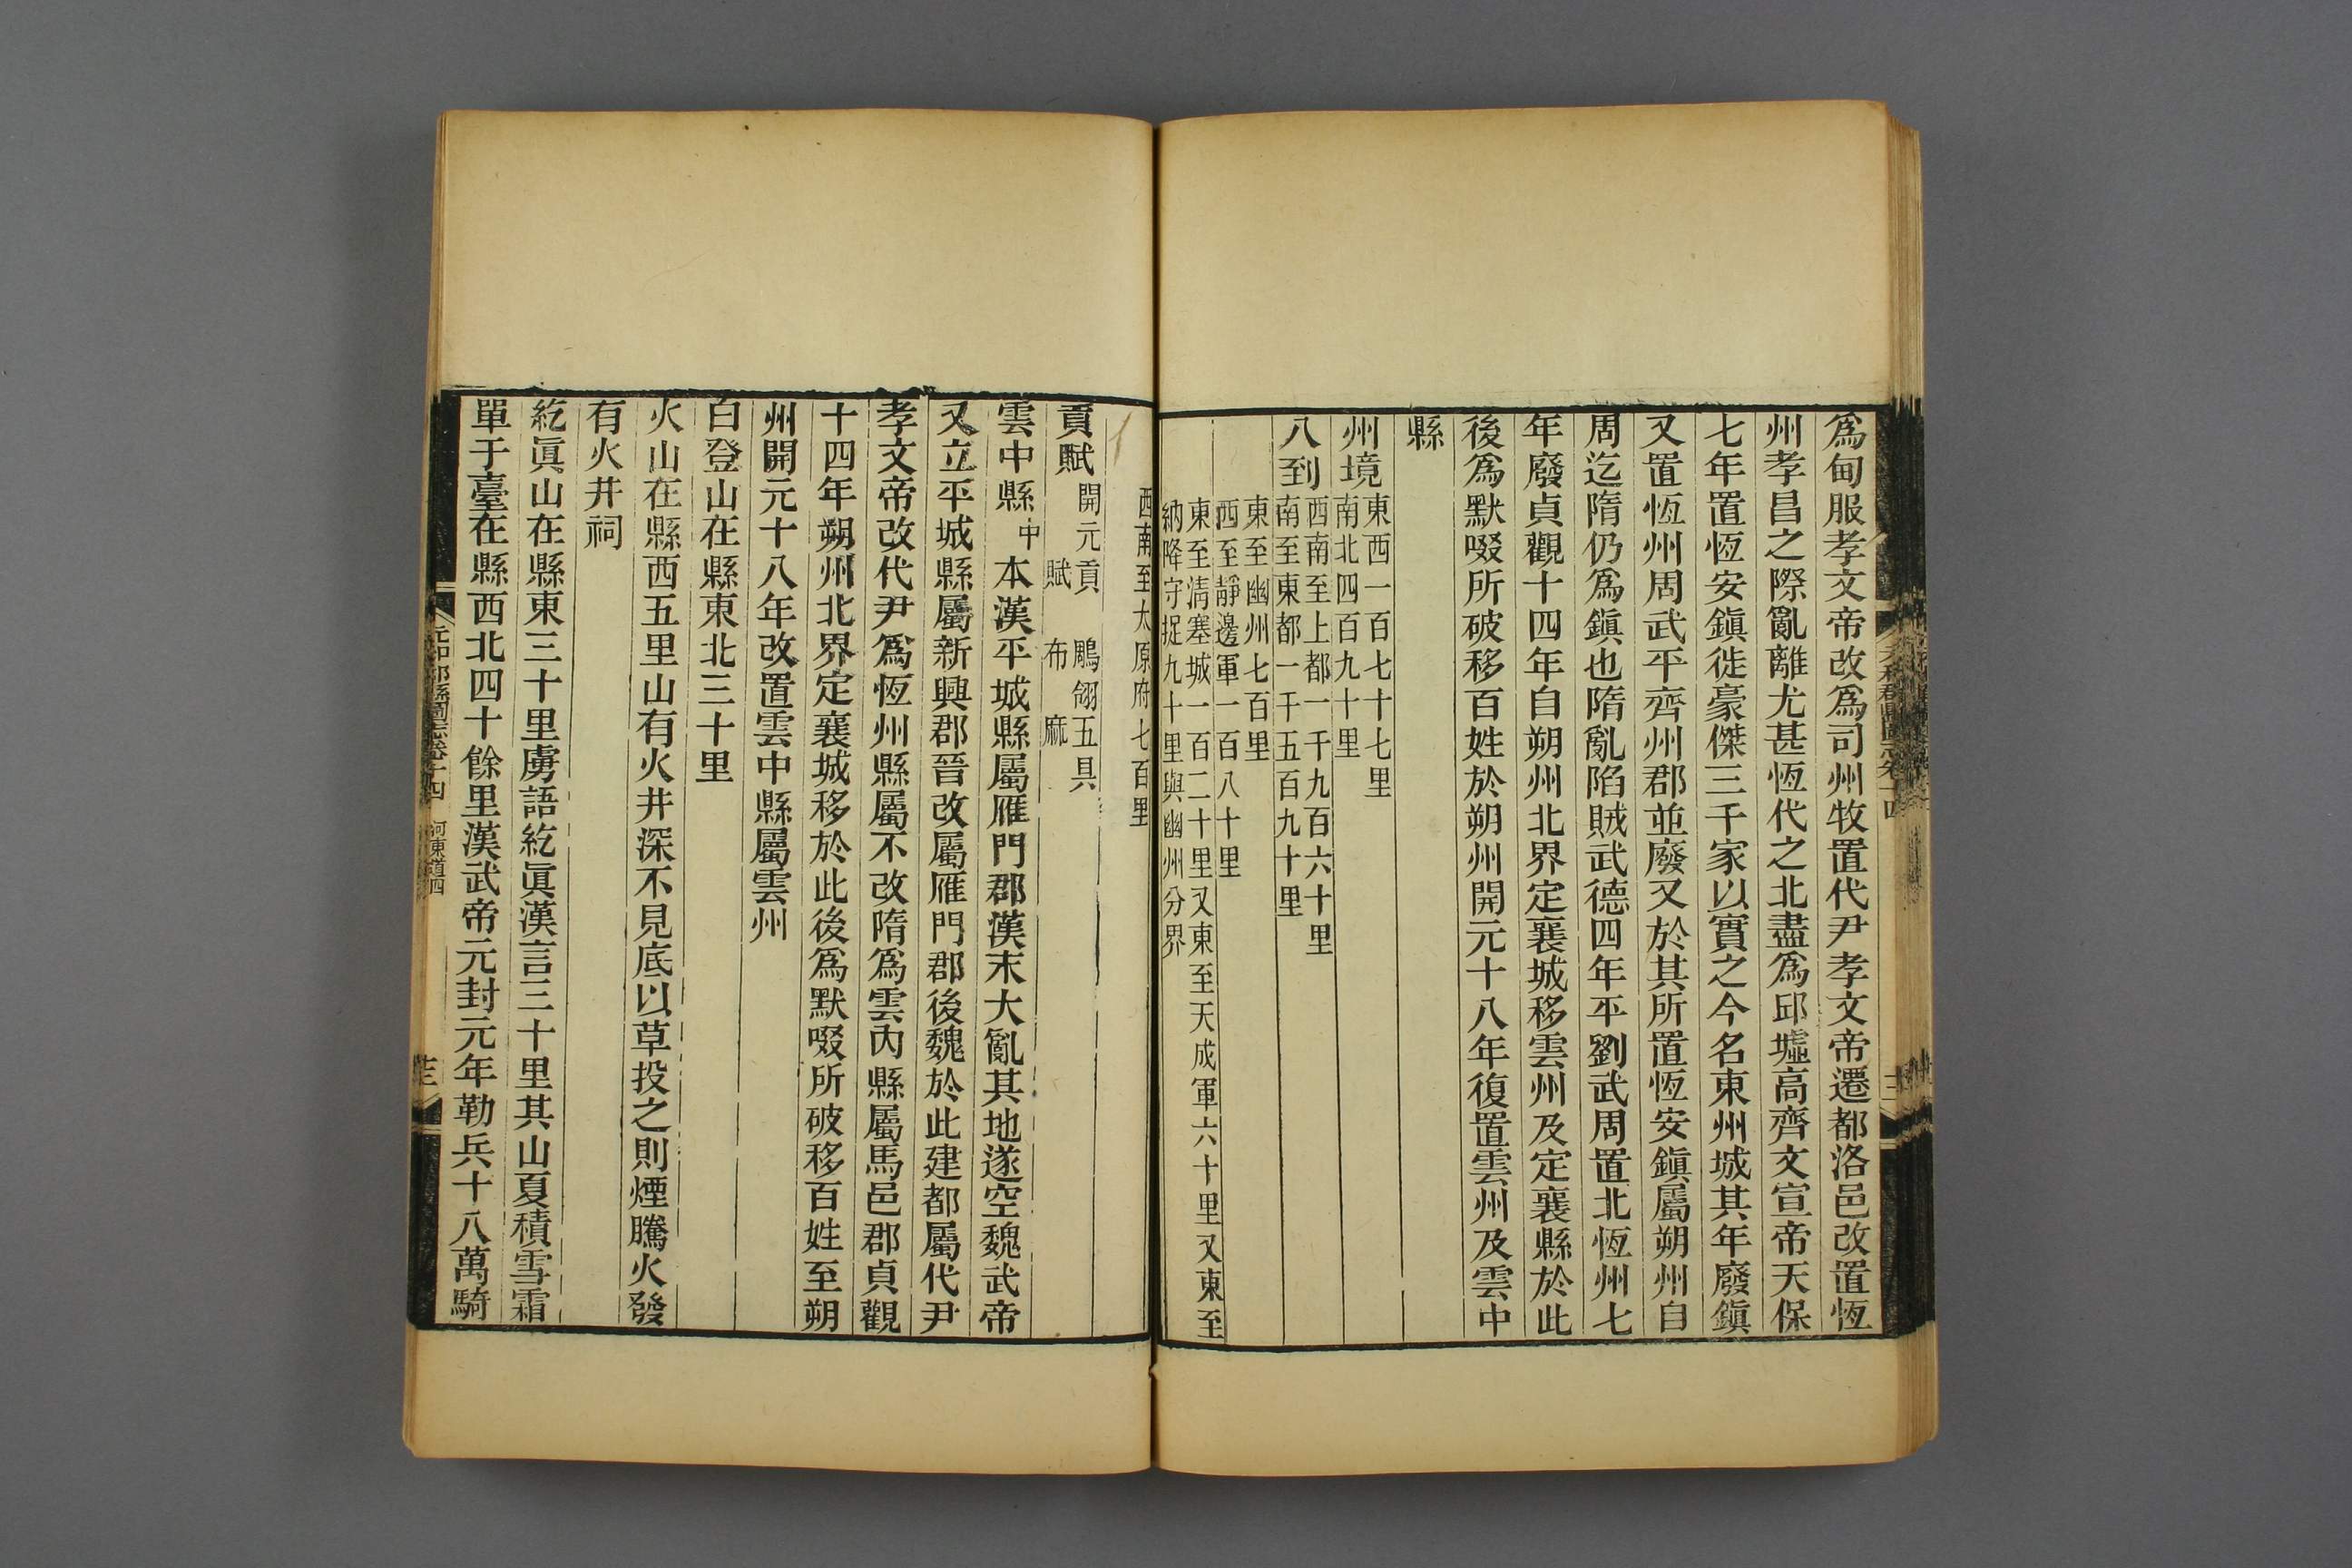 爲甸服孝文帝改爲司州牧置代尹孝文帝遷都洛邑改置恆
州孝昌之際亂離尤甚恆代之北盡爲邱墟高齊文宣帝天保
七年置恆安鎭徙豪傑三千家以實之今名東州城其年廢鎭
又置恆州周武平齊州郡並廢又於其所置恆安鎭屬朔州自
周迄隋仍爲鎭也隋亂陷賊武德四年平劉武周置北恆州七
年廢貞觀十四年自朔州北界定襄城移雲州及定襄縣於此
後爲默啜所破移百姓於朔州開元十八年復置雲州及雲中
縣
州境東西一百七十七里
南北四百九十里
八到西南至上都一千九百六十里
南至東都一千五百九十里
東至幽州七百里
西至靜邊軍一百八十里
東至淸塞城一百二十里又東至天成軍六十里又東至
納降守捉九十里與幽州分界
西南至太原府七百里
貢賦開元貢 鵰翎五具
賦 布 麻
雲中縣中 本漢平城縣屬雁門郡漢末大亂其地遂空魏武帝
又立平城縣屬新興郡晉改屬雁門郡後魏於此建都屬代尹
孝文帝改代尹爲恆州縣屬不改隋爲雲內縣屬馬邑郡貞觀
十四年朔州北界定襄城移於此後爲默啜所破移百姓至朔
州開元十八年改置雲中縣屬雲州
白登山在縣東北三十里
火山在縣西五里山有火井深不見底以草投之則煙騰火發
有火井祠
紇眞山在縣東三十里虜語紇眞漢言三十里其山夏積雪霜
單于臺在縣西北四十餘里漢武帝元封元年勒兵十八萬騎
元和郡縣圖志卷十四 河東道四